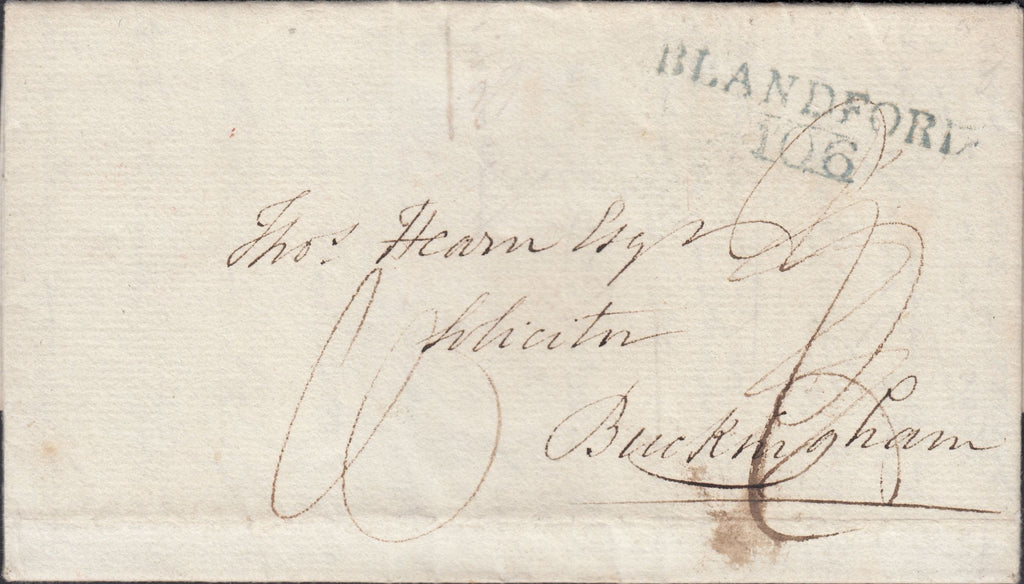 BLANDFORD
106
Thos. Hearn Esqr
Solicitor
Buckingham